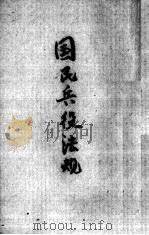 国民兵役法规
mtoou.info mtoou.info